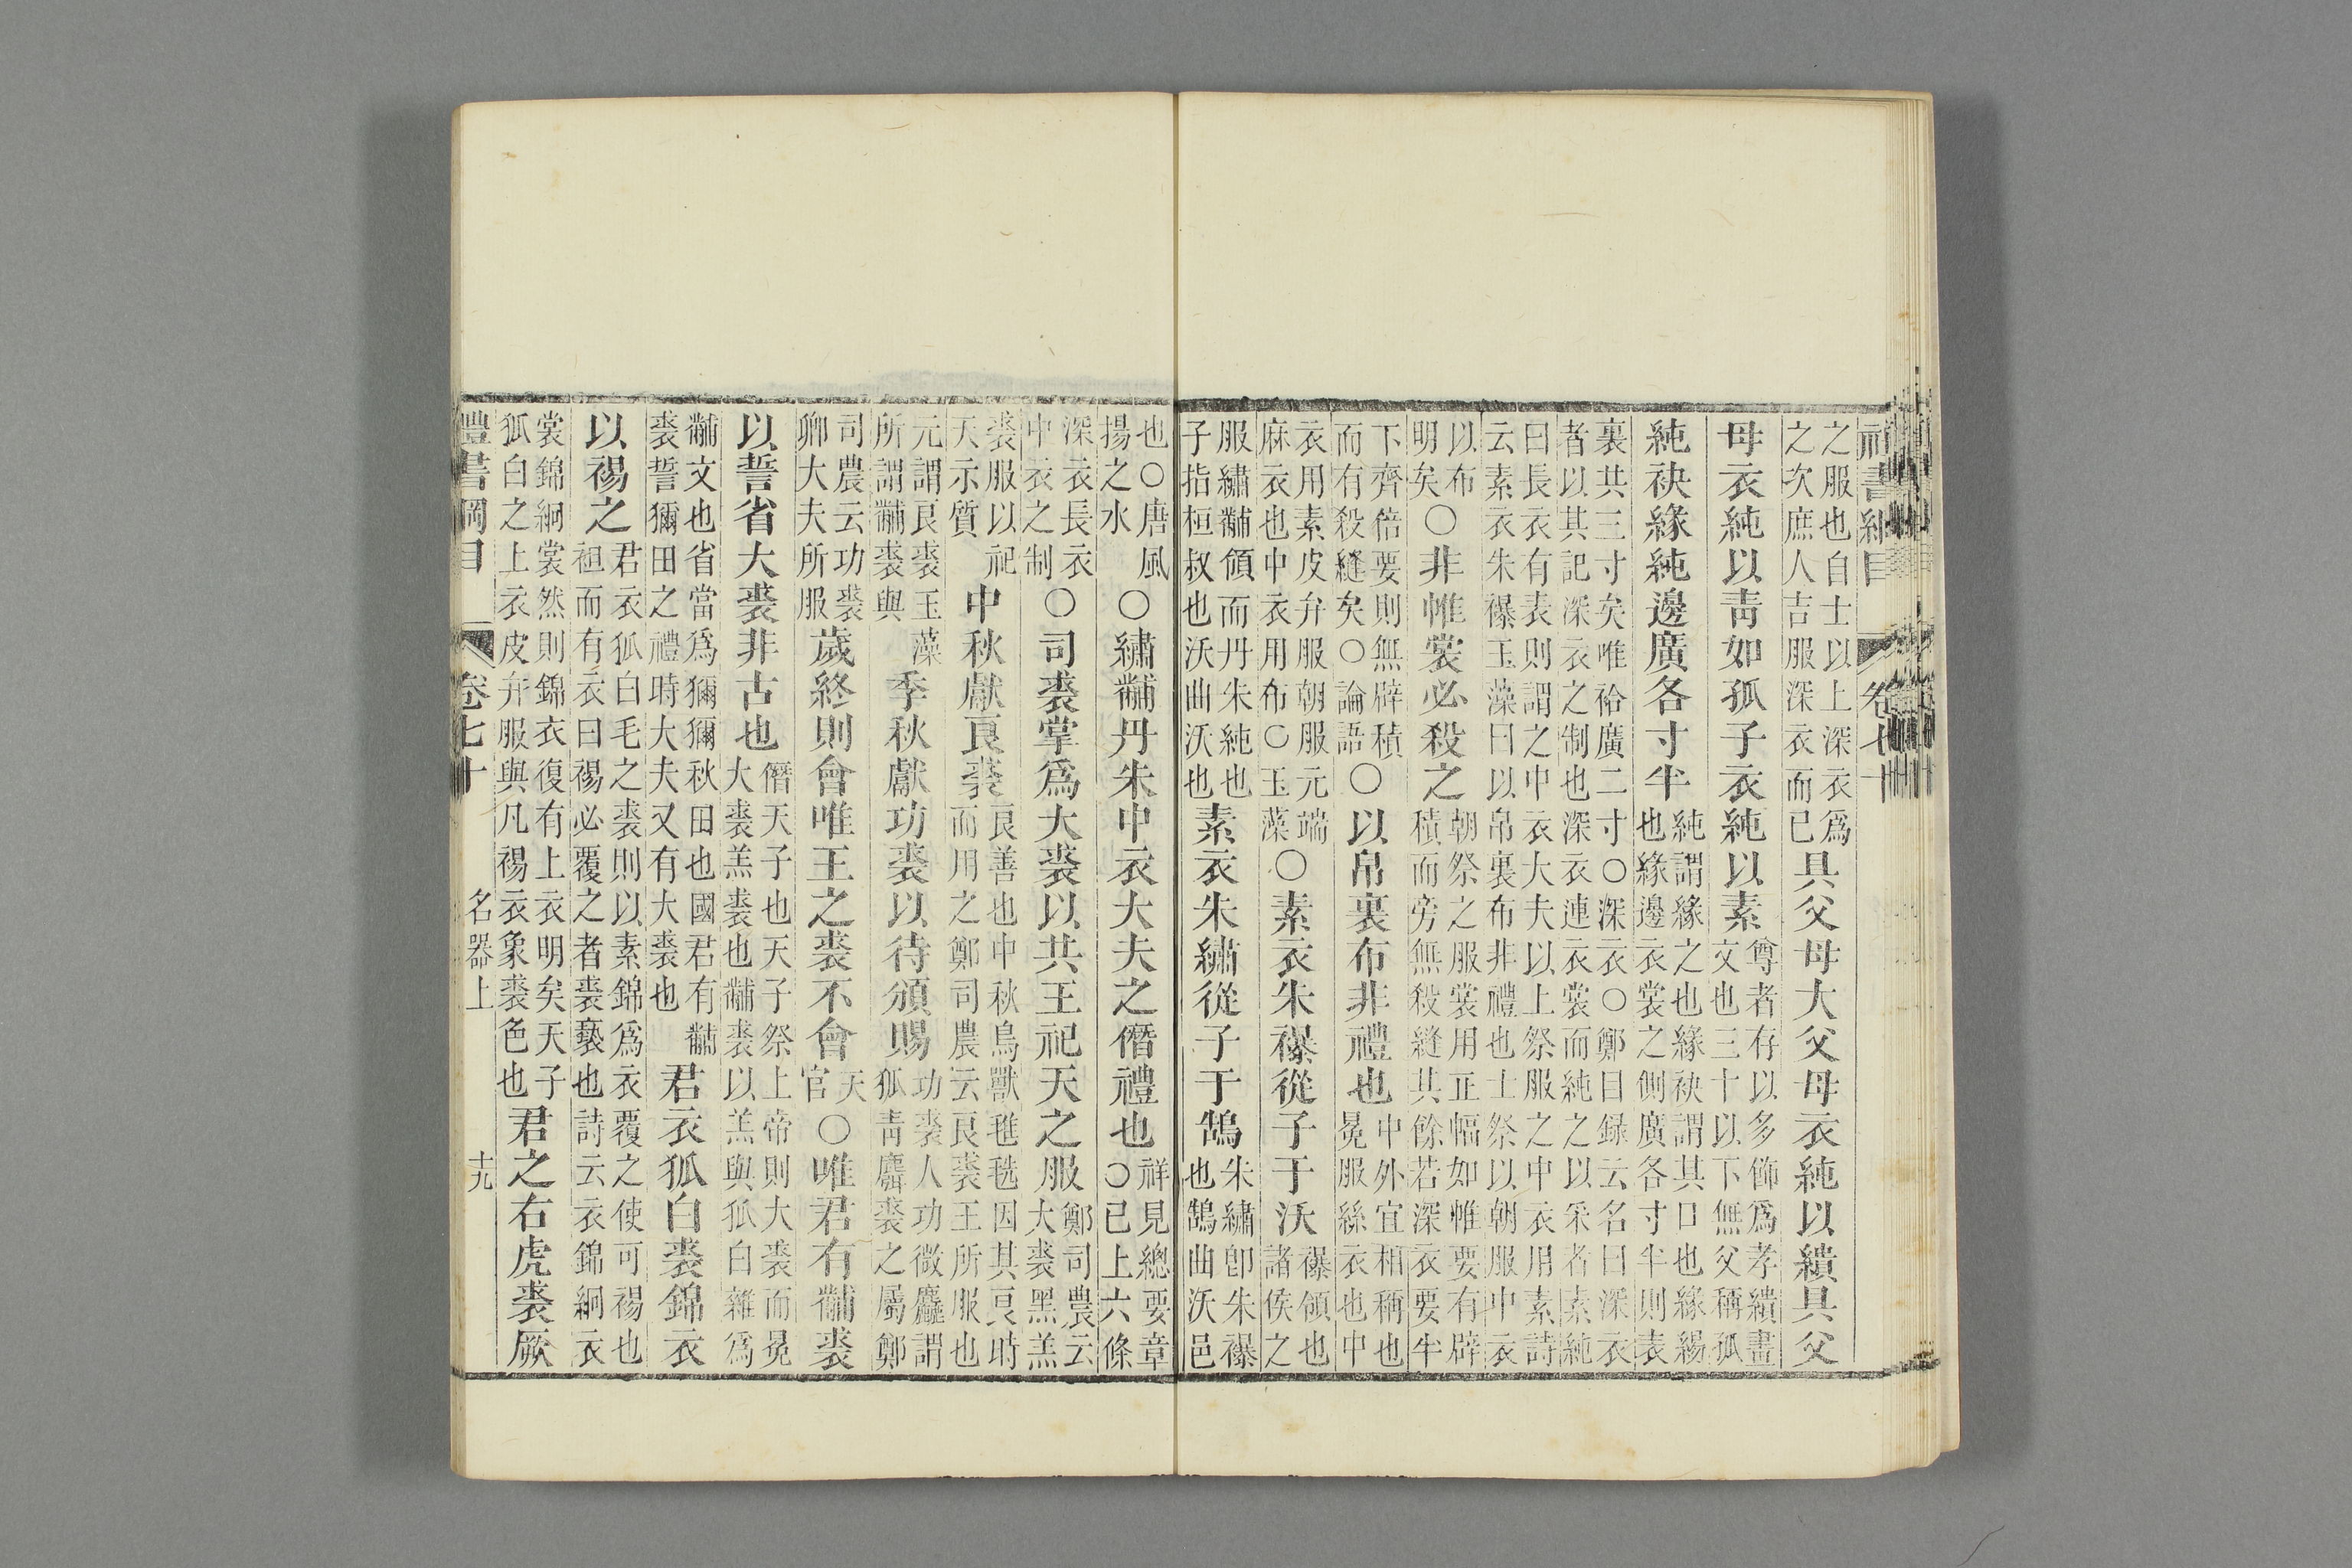 禮書綱目　卷七十
之服也自士以上深衣爲
之次庶人吉服深衣而已
具父母大父母衣純以繢具父
母衣純以靑如孤子衣純以素
尊者存以多飾爲孝繢畫
文也三十以下無父稱孤
純袂緣純邊廣各寸半
純謂緣之也緣袂謂其口也緣緆
也緣邊衣裳之側廣各寸半則表
裏其三寸矣唯袷廣二寸○深衣○鄭目録云名曰深衣
者以其記深衣之制也深衣連衣裳而純之以采者素純
曰長衣有表則謂之中衣大夫以上祭服之中衣用素詩
云素衣朱襮玉藻曰以帛裏布非禮也士祭以朝服中衣
以布
明矣
○非帷裳必殺之
朝祭之服裳用正幅如帷要有辟
積而旁無殺縫其餘若深衣要半
下齊倍要則無辟積
而有殺縫矣○論語
○以帛裏布非禮也
中外宜相稱也
冕服絲衣也中
衣用素皮弁服朝服元端
麻衣也中衣用布○玉藻
○素衣朱襮從子于沃
襮領也
諸侯之
服繡黼領而丹朱純也
子指桓叔也沃曲沃也
素衣朱繡從子于鵠
朱繡卽朱襮
也鵠曲沃邑
也○唐風
揚之水
○繡黼丹朱中衣大夫之僭禮也
祥見總要章
○已上六條
深衣長衣
中衣之制
○司裘掌爲大裘以共王祀天之服
鄭司農云
大裘黑羔
裘服以祀
天示質
中秋獻良裘
良善也中秋鳥獸毨毨因其良時
而用之鄭司農云良裘王所服也
元謂良裘玉藻
所謂黼裘與
季秋獻功裘以待頒賜
功裘人功微麤謂
狐靑麛裘之屬鄭
司農云功裘
卿大夫所服
歲終則會唯王之裘不會
天
官
○唯君有黼裘
以誓省大裘非古也
僭天子也天子祭上帝則大裘而冕
大裘羔裘也黼裘以羔與狐白雜爲
黼文也省當爲獮獮秋田也國君有黼
裘誓獮田之禮時大夫又有大裘也
君衣狐白裘錦衣
以裼之
君衣狐白毛之裘則以素錦爲衣覆之使可裼也
袒而有衣曰裼必覆之者裘褻也詩云衣錦絅衣
裳錦絅裳然則錦衣復有上衣明矣天子
狐白之上衣皮弁服與凡裼衣象裘色也
君之右虎裘厥
禮書綱目　卷七十　名器上　十九